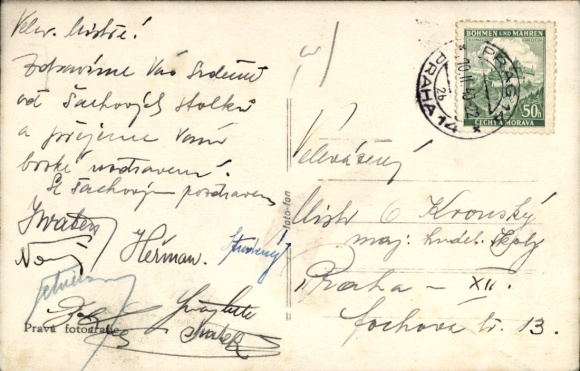 Velev. Mistře!
Zdravíme Vás srdečně
od šachových stolků
a přejeme Vám
brzké uzdravení.
Se šachovým pozdravem
Heřman.
Pravá fotografie
foto-fon
BÖHMEN UND MÄHREN
50h
ČECHY A MORAVA
PRAG 14
PRAHA 14
Velevážený
Mistr O Kronský
maj. hudeb. školy
Praha – XII.
Fochova tř. 13.